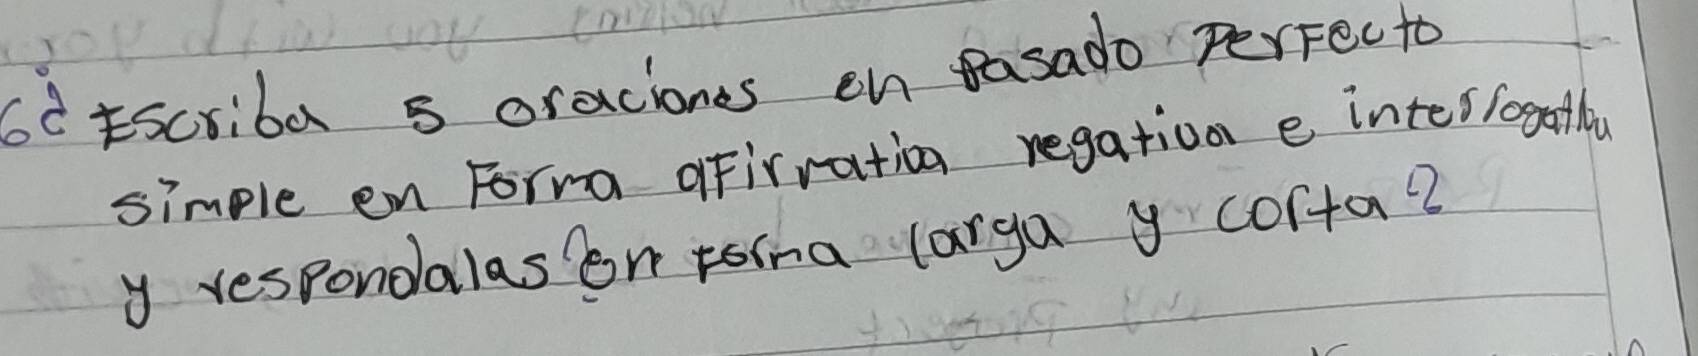 6¿ Escriba 5 oraciones en Pasado Perfecto
simple en Forma aFirmativa negativa e interrogativa
y respondalas en Forma larga y corta?